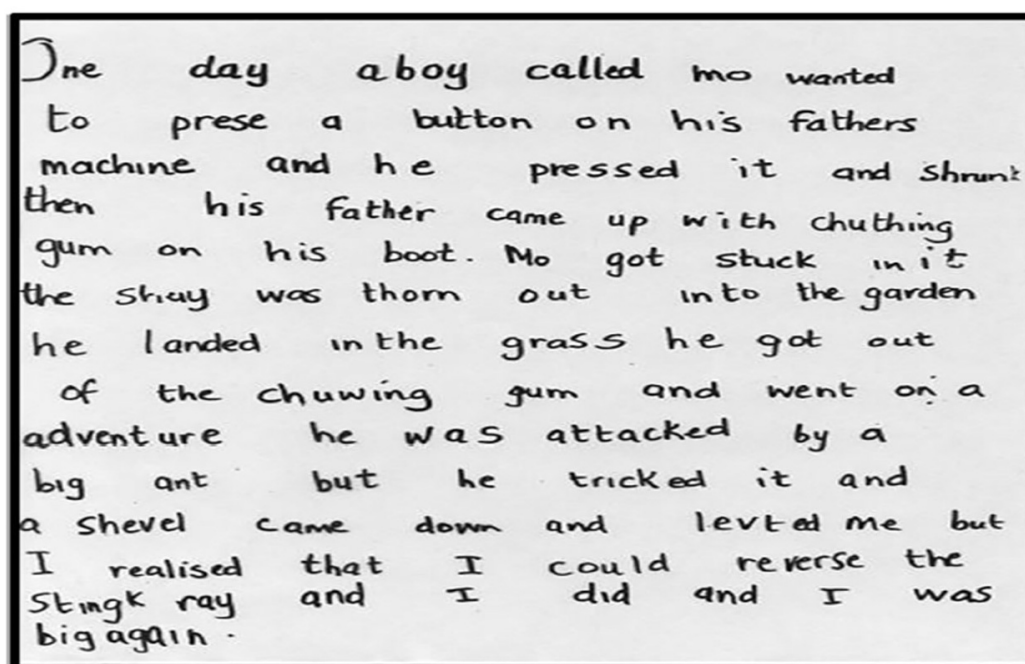 One day a boy called mo wanted
to prese a button on his fathers
machine and he pressed it and shrunk
then his father came up with chuthing
gum on his boot. Mo got stuck in it
the shuy was thorn out into the garden
he landed in the grass he got out
of the chuwing gum and went on a
adventure he was attacked by a
big ant but he tricked it and
a shevel came down and levted me but
I realised that I could reverse the
Stingk ray and I did and I was
big again.